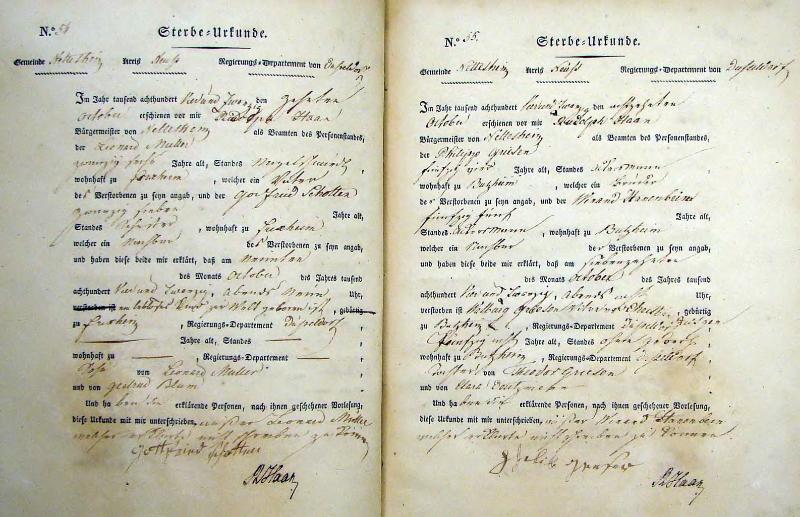 N.º 54 Sterbe=Urkunde.
Gemeinde Nettesheim Kreis Neuß Regierungs=Departement von Dusseldorf
Im Jahr tausend achthundert Vier und Zwanzig den zehnten
October erschienen vor mir Rudolph Haan
Bürgermeister von Nettesheim als Beamten des Personenstandes,
der Leonard Muller
zwanzig sechs Jahre alt, Standes
wohnhaft zu welcher ein Vater
des Verstorbenen zu seyn angab, und der Gottfried Schotten
zwanzig sieben Jahre alt,
Standes , wohnhaft zu
welcher ein Nachbar des Verstorbenen zu seyn angab,
und haben diese beide mir erklärt, daß am Neunten
des Monats October des Jahres tausend
achthundert Vier und Zwanzig, Abends Neun Uhr,
verstorben ist ein Kind zur Welt geboren ist, gebürtig
zu , Regierungs=Departement Dusseldorf
Jahre alt, Standes
wohnhaft zu , Regierungs=Departement
von Leonard Muller
und von Gertrud Blum
Und haben die erklärende Personen, nach ihnen geschehener Vorlesung,
diese Urkunde mit mir unterschrieben, außer Leonard Muller
welcher erklarte nicht schreiben zu können
Gottfried Schotten
R Haan
N.º 55. Sterbe=Urkunde.
Gemeinde Nettesheim Kreis Neuß Regierungs=Departement von Dusseldorf
Im Jahr tausend achthundert Vier und Zwanzig den achtzehnten
October erschienen vor mir Rudolph Haan
Bürgermeister von Nettesheim als Beamten des Personenstandes,
der Philipp Griesen
fünfzig vier Jahre alt, Standes Ackersmann
wohnhaft zu Butzheim , welcher ein Bruder
des Verstorbenen zu seyn angab, und der Winand Hanenbein
fünfzig fünf Jahre alt,
Standes Ackersmann , wohnhaft zu Butzheim
welcher ein Nachbar des Verstorbenen zu seyn angab,
und haben diese beide mir erklärt, daß am siebenzehnten
des Monats October des Jahres tausend
achthundert Vier und Zwanzig, Abends acht Uhr,
verstorben ist Griesen gebürtig
zu Butzheim , Regierungs=Departement Dusseldorf
fünfzig acht Jahre alt, Standes ohne
wohnhaft zu Butzheim , Regierungs=Departement Dusseldorf
Tochter von Theodor Griesen
und von Clara
Und haben die erklärende Personen, nach ihnen geschehener Vorlesung,
diese Urkunde mit mir unterschrieben, außer Winand Hanenbein
welcher erklarte nicht schreiben zu können
R Haan